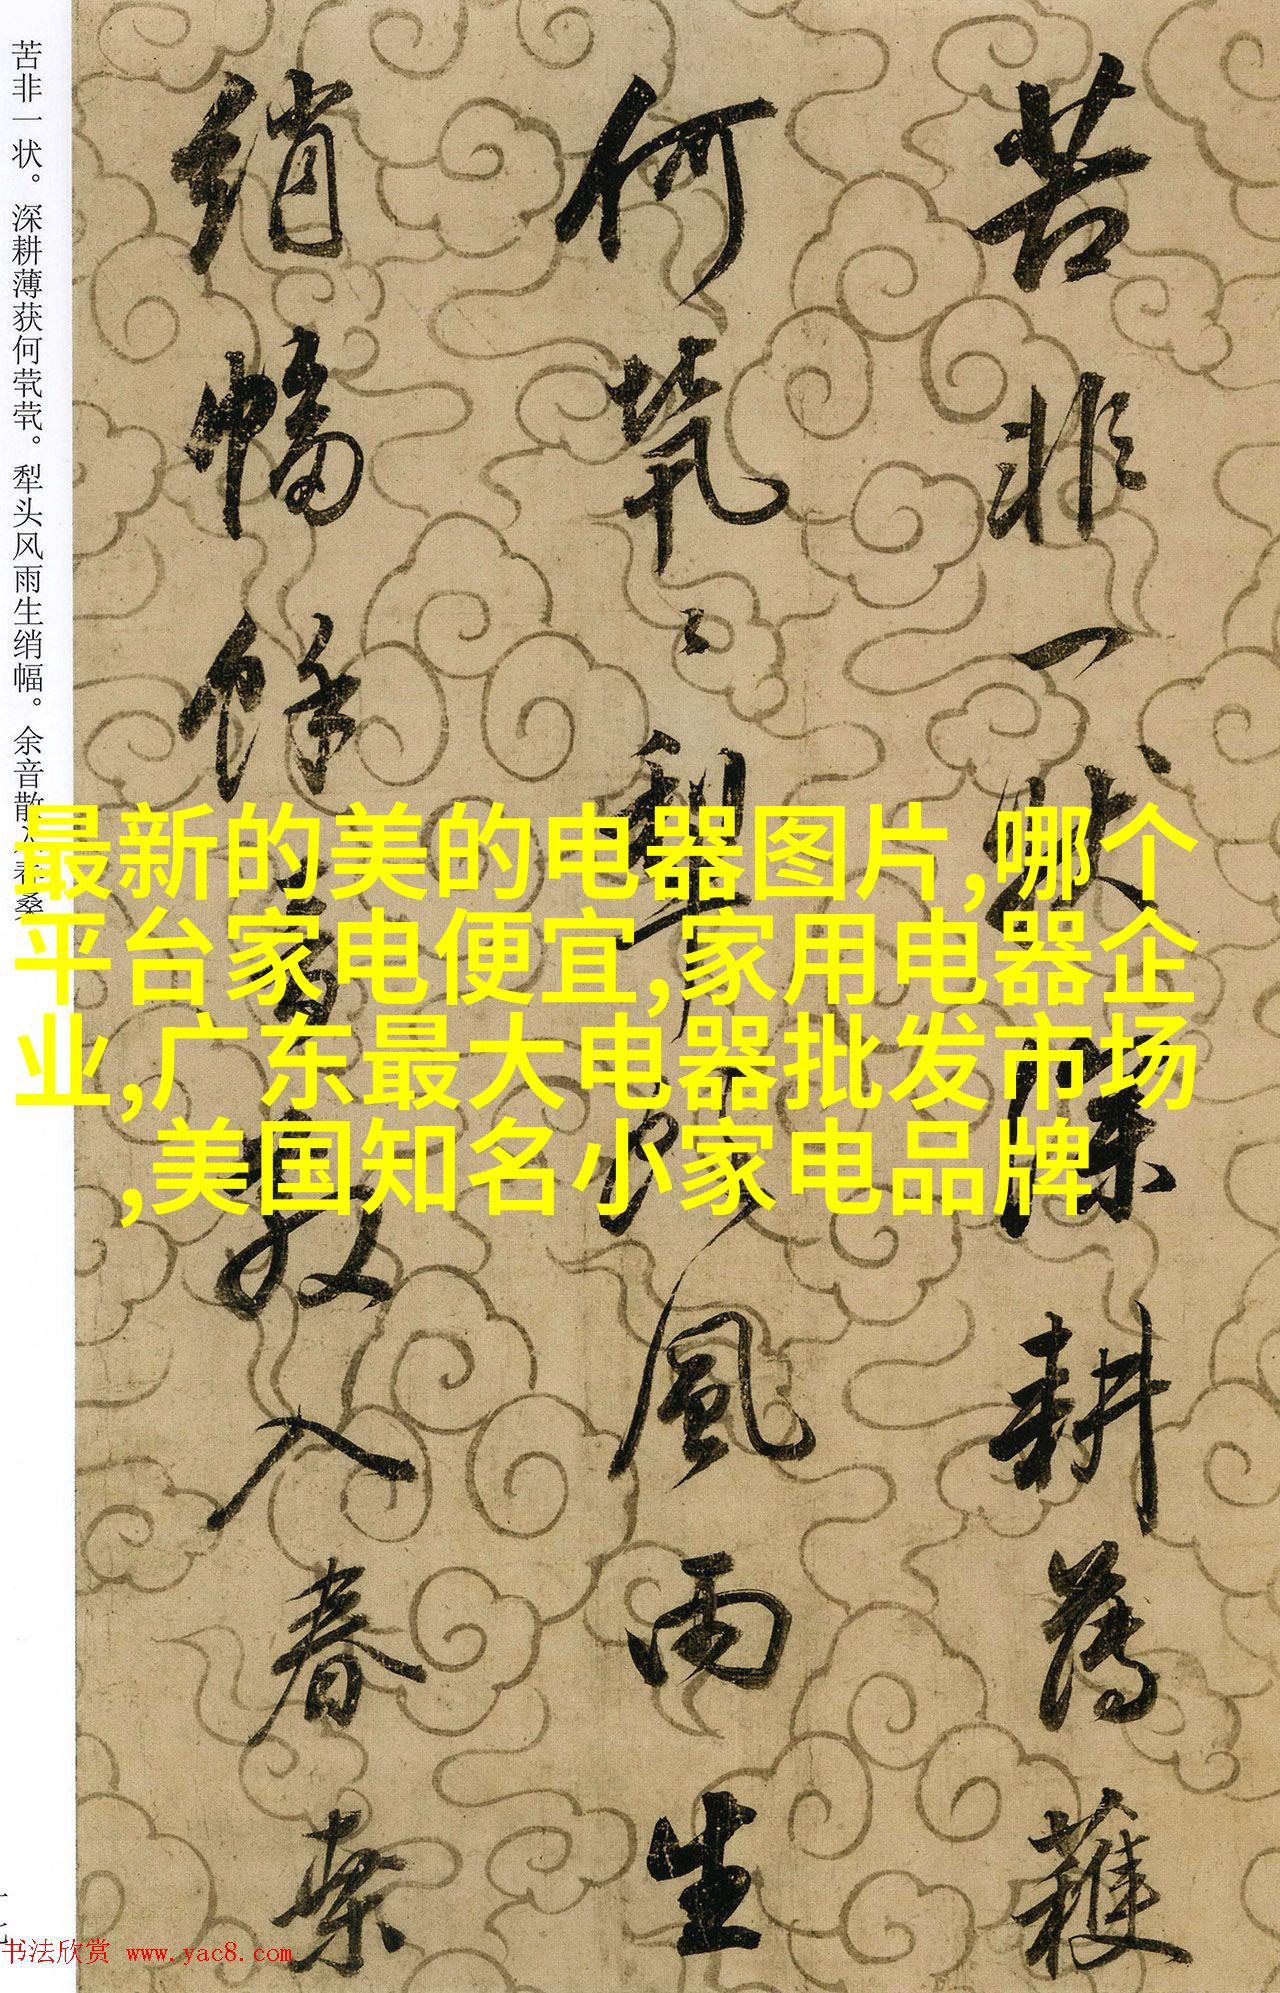 苦非一状。深耕薄获何茕茕。犁头风雨生绡幅。余音散入春桑
苦非一狀深耕薄穫
何煢〻犁頭風雨生
綃幅餘音散入春桑
最新的美的电器图片,哪个
平台家电便宜,家用电器企
业,广东最大电器批发市场
,美国知名小家电品牌
书法欣赏 www.yac8.com